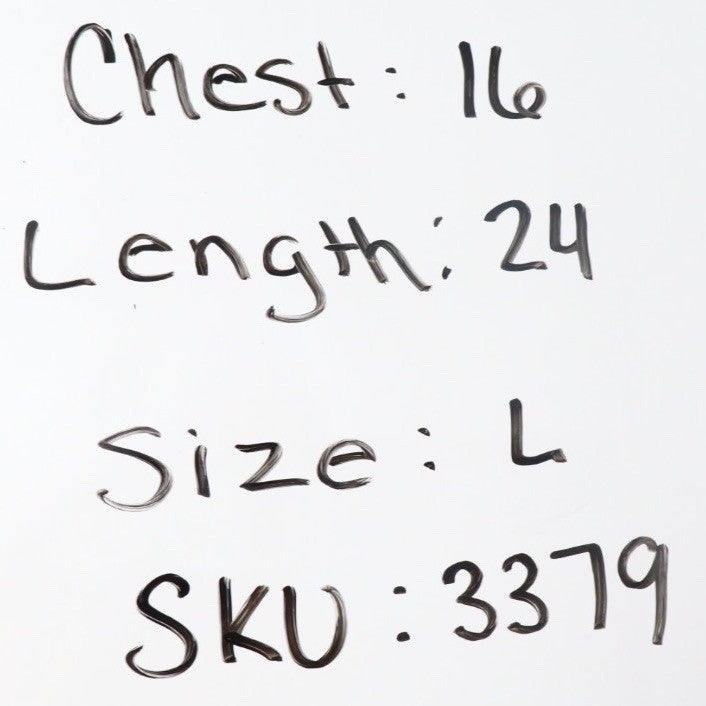 Chest: 16
Length: 24
Size: L
SKU: 3379